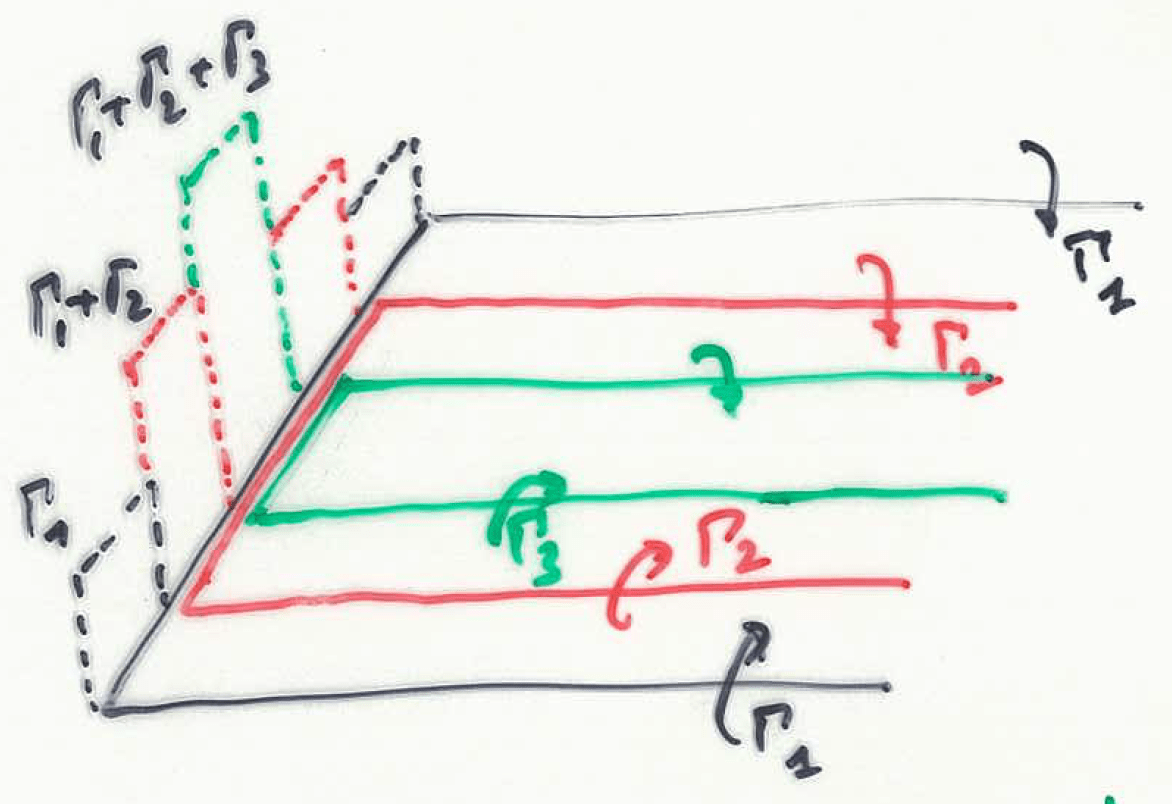 Γ₁+Γ₂+Γ₃
Γ₁+Γ₂
Γ₁
Γ₁
Γ₂
Γ₃
Γ₂
Γ₁